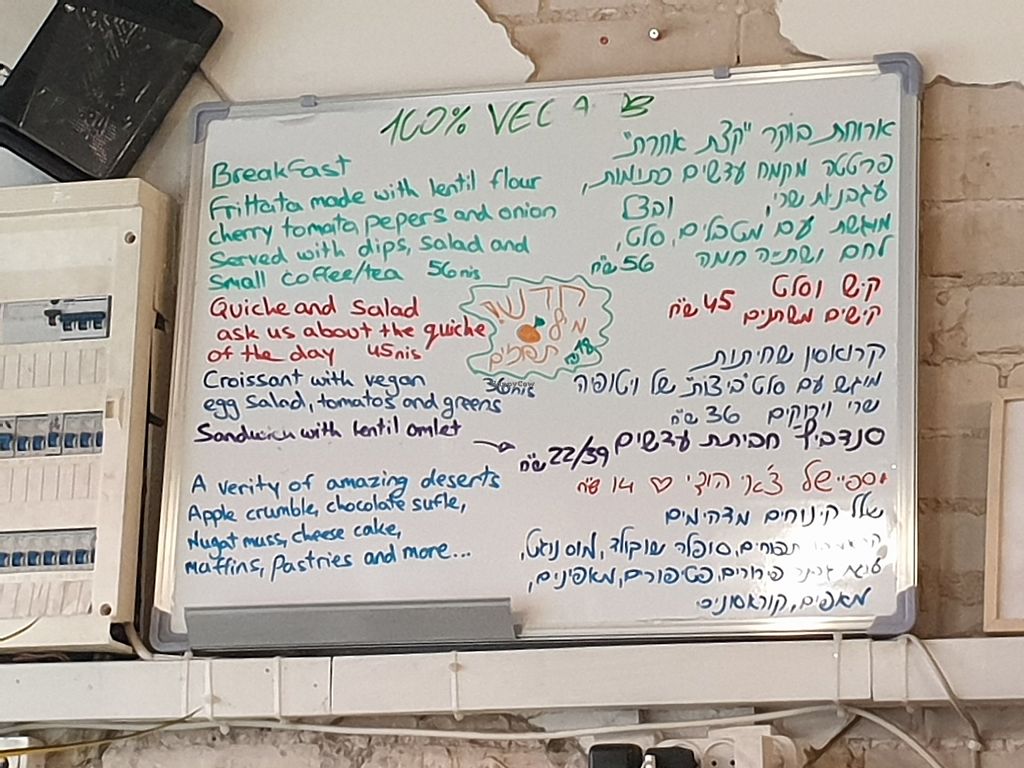 100% VEG
BreakFast
Frittata made with lentil flour
cherry tomata pepers and onion
Served with dips, salad and
Small coffee/tea 56nis
Quiche and Salad
ask us about the quiche
of the day 45nis
Croissant with vegan 36nis
egg Salad, tomatos and greens
Sandwich with lentil omlet
A verity of amazing deserts
Apple crumble, chocolate sufle,
Nugat muss, cheese cake,
maffins, Pastries and more...
חדש
מיץ
תפוזים
18
HappyCow
ארוחת בוקר "קצת אחרת"
פרטטה מקמח עדשים כתומות,
עגבניות שרי, ובצל
מוגשת עם מטבלים, סלט,
לחם ושתיה חמה 56 ש"ח
קיש וסלט
קישים משתנים 45 ש"ח
קרואסון שחיתות
מוגש עם סלט "ביצות" של ויטופיה
שרי וירוקים 36 ש"ח
סנדביץ' חביתת עדשים 22/39 ש"ח
ספיישל צ'אי הודי ♡ 14 ש"ח
שלל קינוחים מדהימים
תפוחים, סופלה שוקולד, מוס נוגט,
עוגת גבינה פירורים, פטיפורים, מאפינים,
מאפים, קוראסונים